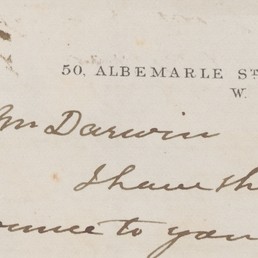 50, ALBEMARLE ST
W.
Mr Darwin
I have th
ounce to you